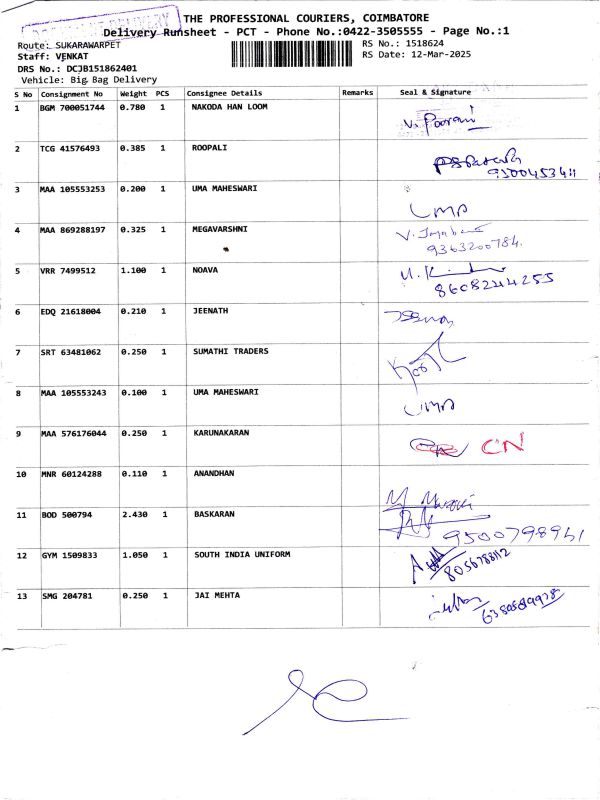 THE PROFESSIONAL COURIERS, COIMBATORE
Delivery Runsheet - PCT - Phone No.:0422-3505555 - Page No.:1
Route: SUKARAWARPET
RS No.: 1518624
Staff: VENKAT
RS Date: 12-Mar-2025
DRS No.: DCJB151862401
Vehicle: Big Bag Delivery
S No Consignment No Weight PCS Consignee Details Remarks Seal & Signature
1 BGM 700051744 0.780 1 NAKODA HAN LOOM V. Poorani
2 TCG 41576493 0.385 1 ROOPALI
9500453411
3 MAA 105553253 0.200 1 UMA MAHESWARI UMA
4 MAA 869288197 0.325 1 MEGAVARSHNI
9363200784.
5 VRR 7499512 1.100 1 NOAVA
8608244255
6 EDQ 21618004 0.210 1 JEENATH
7 SRT 63481062 0.250 1 SUMATHI TRADERS
8 MAA 105553243 0.100 1 UMA MAHESWARI UMA
9 MAA 576176044 0.250 1 KARUNAKARAN CN
10 MNR 60124288 0.110 1 ANANDHAN
11 BOD 500794 2.430 1 BASKARAN
9500798961
12 GYM 1509833 1.050 1 SOUTH INDIA UNIFORM
8056788112
13 SMG 204781 0.250 1 JAI MEHTA